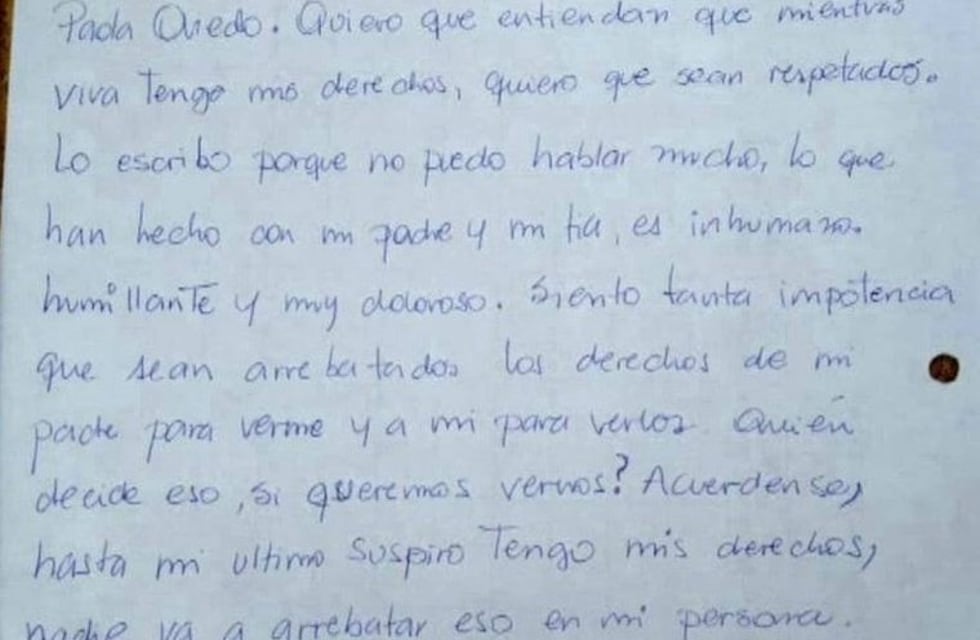 Paola Oviedo. Quiero que entiendan que mientras
viva Tengo mis derechos, quiero que sean respetados.
Lo escribo porque no puedo hablar mucho, lo que
han hecho con mi padre y mi tia, es inhumano.
humillanTE y muy doloroso. Siento tanta impotencia
que sean arrebatados los derechos de mi
padre para verme y a mi para verlos. Quién
decide eso, si queremos vernos? Acuerdense,
hasta mi ultimo suspiro Tengo mis derechos,
nadie va a arrebatar eso en mi persona.